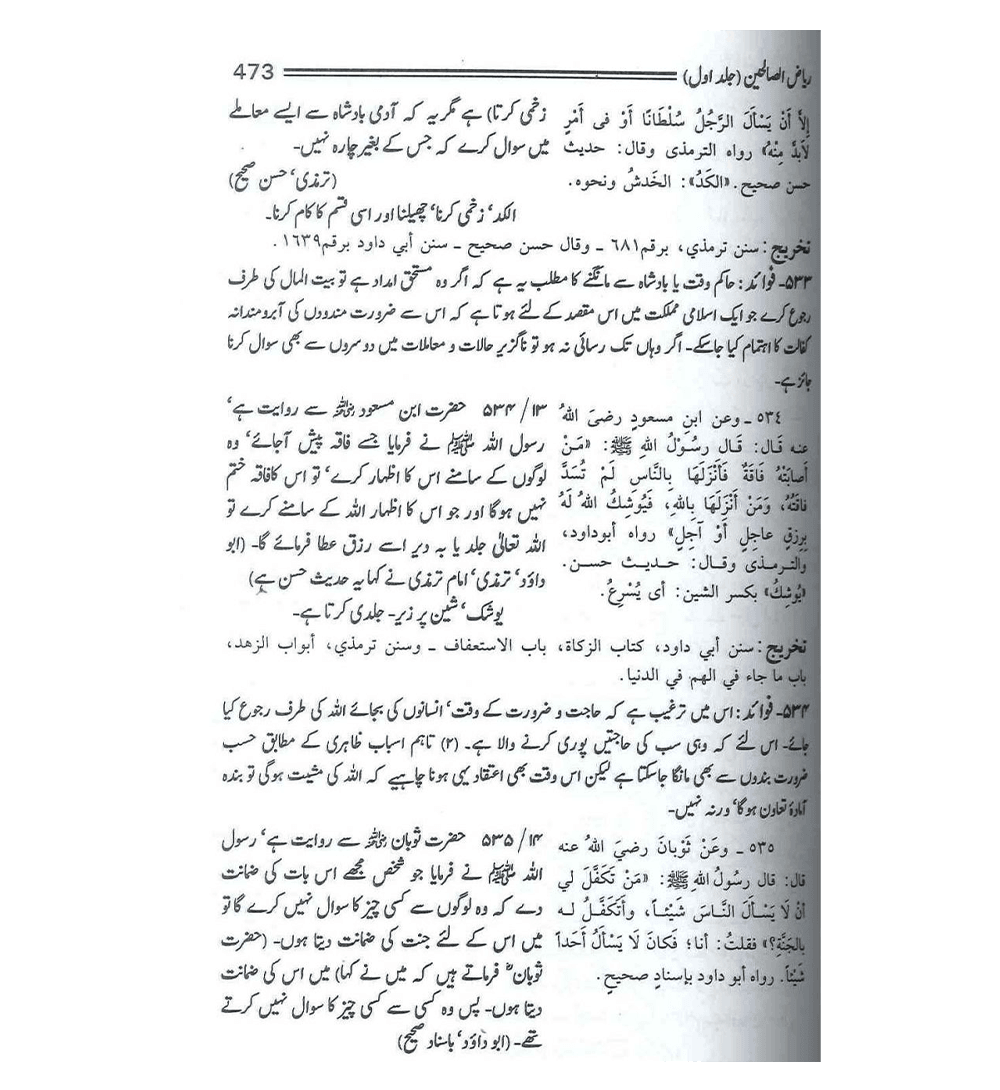 ریاض الصالحین (جلد اول) 473
إِلاَّ أَنْ يَسْأَلَ الرَّجُلُ سُلْطَانًا أَوْ فى أَمْرٍ
لاَبُدَّ مِنْهُ» رواه الترمذى وقال: حديث
حسن صحيح. «الكَدُّ»: الخَدشُ ونحوه.
زخمی کرتا) ہے مگر یہ کہ آدمی بادشاہ سے ایسے معاملے
میں سوال کرے کہ جس کے بغیر چارہ نہیں۔
(ترمذی‘ حسن صحیح)
الکد‘ زخمی کرنا‘ چھیلنا اور اسی قسم کا کام کرنا۔
تخريج: سنن ترمذي، برقم ٦٨١ ـ وقال حسن صحيح ـ سنن أبي داود برقم ١٦٣٩.
۵۳۳۔ فوائد: حاکم وقت یا بادشاہ سے مانگنے کا مطلب یہ ہے کہ اگر وہ مستحق امداد ہے تو بیت المال کی طرف
رجوع کرے جو ایک اسلامی مملکت میں اس مقصد کے لئے ہوتا ہے کہ اس سے ضرورت مندوں کی آبرومندانہ
کفالت کا اہتمام کیا جاسکے۔ اگر وہاں تک رسائی نہ ہو تو ناگزیر حالات و معاملات میں دوسروں سے بھی سوال کرنا
جائز ہے۔
٥٣٤ ـ وعن ابنِ مسعودٍ رضىَ اللهُ
عنه قَالَ: قَال رسُوْلُ اللهِ ﷺ: «مَـنْ
أَصابَتْهُ فَاقَةٌ فَأَنْزَلَهَا بِالنَّاسِ لَمْ تُسَدَّ
فاقَتُهُ، وَمَنْ أَنْزَلَهَا بِاللهِ، فَيُوْشِكُ اللهُ لَهُ
بِرِزقٍ عاجِلٍ أَوْ آجِلٍ» رواه أبوداود،
والتـرمذى وقـال: حـديـث حسـن.
«يُوْشِكُ» بكسر الشين: أى يُسْرِعُ.
۱۳/ ۵۳۴ حضرت ابن مسعود رضی اللہ عنہ سے روایت ہے‘
رسول اللہ ﷺ نے فرمایا جسے فاقہ پیش آجائے‘ وہ
لوگوں کے سامنے اس کا اظہار کرے‘ تو اس کا فاقہ ختم
نہیں ہوگا اور جو اس کا اظہار اللہ کے سامنے کرے تو
اللہ تعالیٰ جلد یا بہ دیر اسے رزق عطا فرمائے گا۔ (ابو
داؤد‘ ترمذی‘ امام ترمذی نے کہا یہ حدیث حسن ہے)
یوشک‘ شین پر زیر۔ جلدی کرتا ہے۔
تخريج: سنن أبي داود، كتاب الزكاة، باب الاستعفاف ـ وسنن ترمذي، أبواب الزهد،
باب ما جاء في الهم في الدنيا.
۵۳۴۔ فوائد: اس میں ترغیب ہے کہ حاجت و ضرورت کے وقت‘ انسانوں کی بجائے اللہ کی طرف رجوع کیا
جائے۔ اس لئے کہ وہی سب کی حاجتیں پوری کرنے والا ہے۔ (۲) تاہم اسباب ظاہری کے مطابق حسب
ضرورت بندوں سے بھی مانگا جاسکتا ہے لیکن اس وقت بھی اعتقاد یہی ہونا چاہیے کہ اللہ کی مشیت ہوگی تو بندہ
آمادۂ تعاون ہوگا‘ ورنہ نہیں۔
٥٣٥ ـ وعَنْ ثَوْبانَ رضيَ اللهُ عنه
قال: قال رسُولُ اللهِ ﷺ: «مَن تَكَفَّلَ لي
أنْ لاَ يَسْأَلَ النَّاسَ شَيْئـاً، وأَتَكَفَّلُ لـه
بِالجَنَّةِ؟» فقلتُ: أنا؛ فَكانَ لاَ يَسْأَلُ أَحَداً
شَيْئاً. رواه أبو داود بإسنادٍ صحيحٍ.
۱۴/ ۵۳۵ حضرت ثوبان رضی اللہ عنہ سے روایت ہے‘ رسول
اللہ ﷺ نے فرمایا جو شخص مجھے اس بات کی ضمانت
دے کہ وہ لوگوں سے کسی چیز کا سوال نہیں کرے گا تو
میں اس کے لئے جنت کی ضمانت دیتا ہوں۔ (حضرت
ثوبانؓ فرماتے ہیں کہ میں نے کہا) میں اس کی ضمانت
دیتا ہوں۔ پس وہ کسی سے کسی چیز کا سوال نہیں کرتے
تھے۔ (ابو داؤد‘ باسناد صحیح)